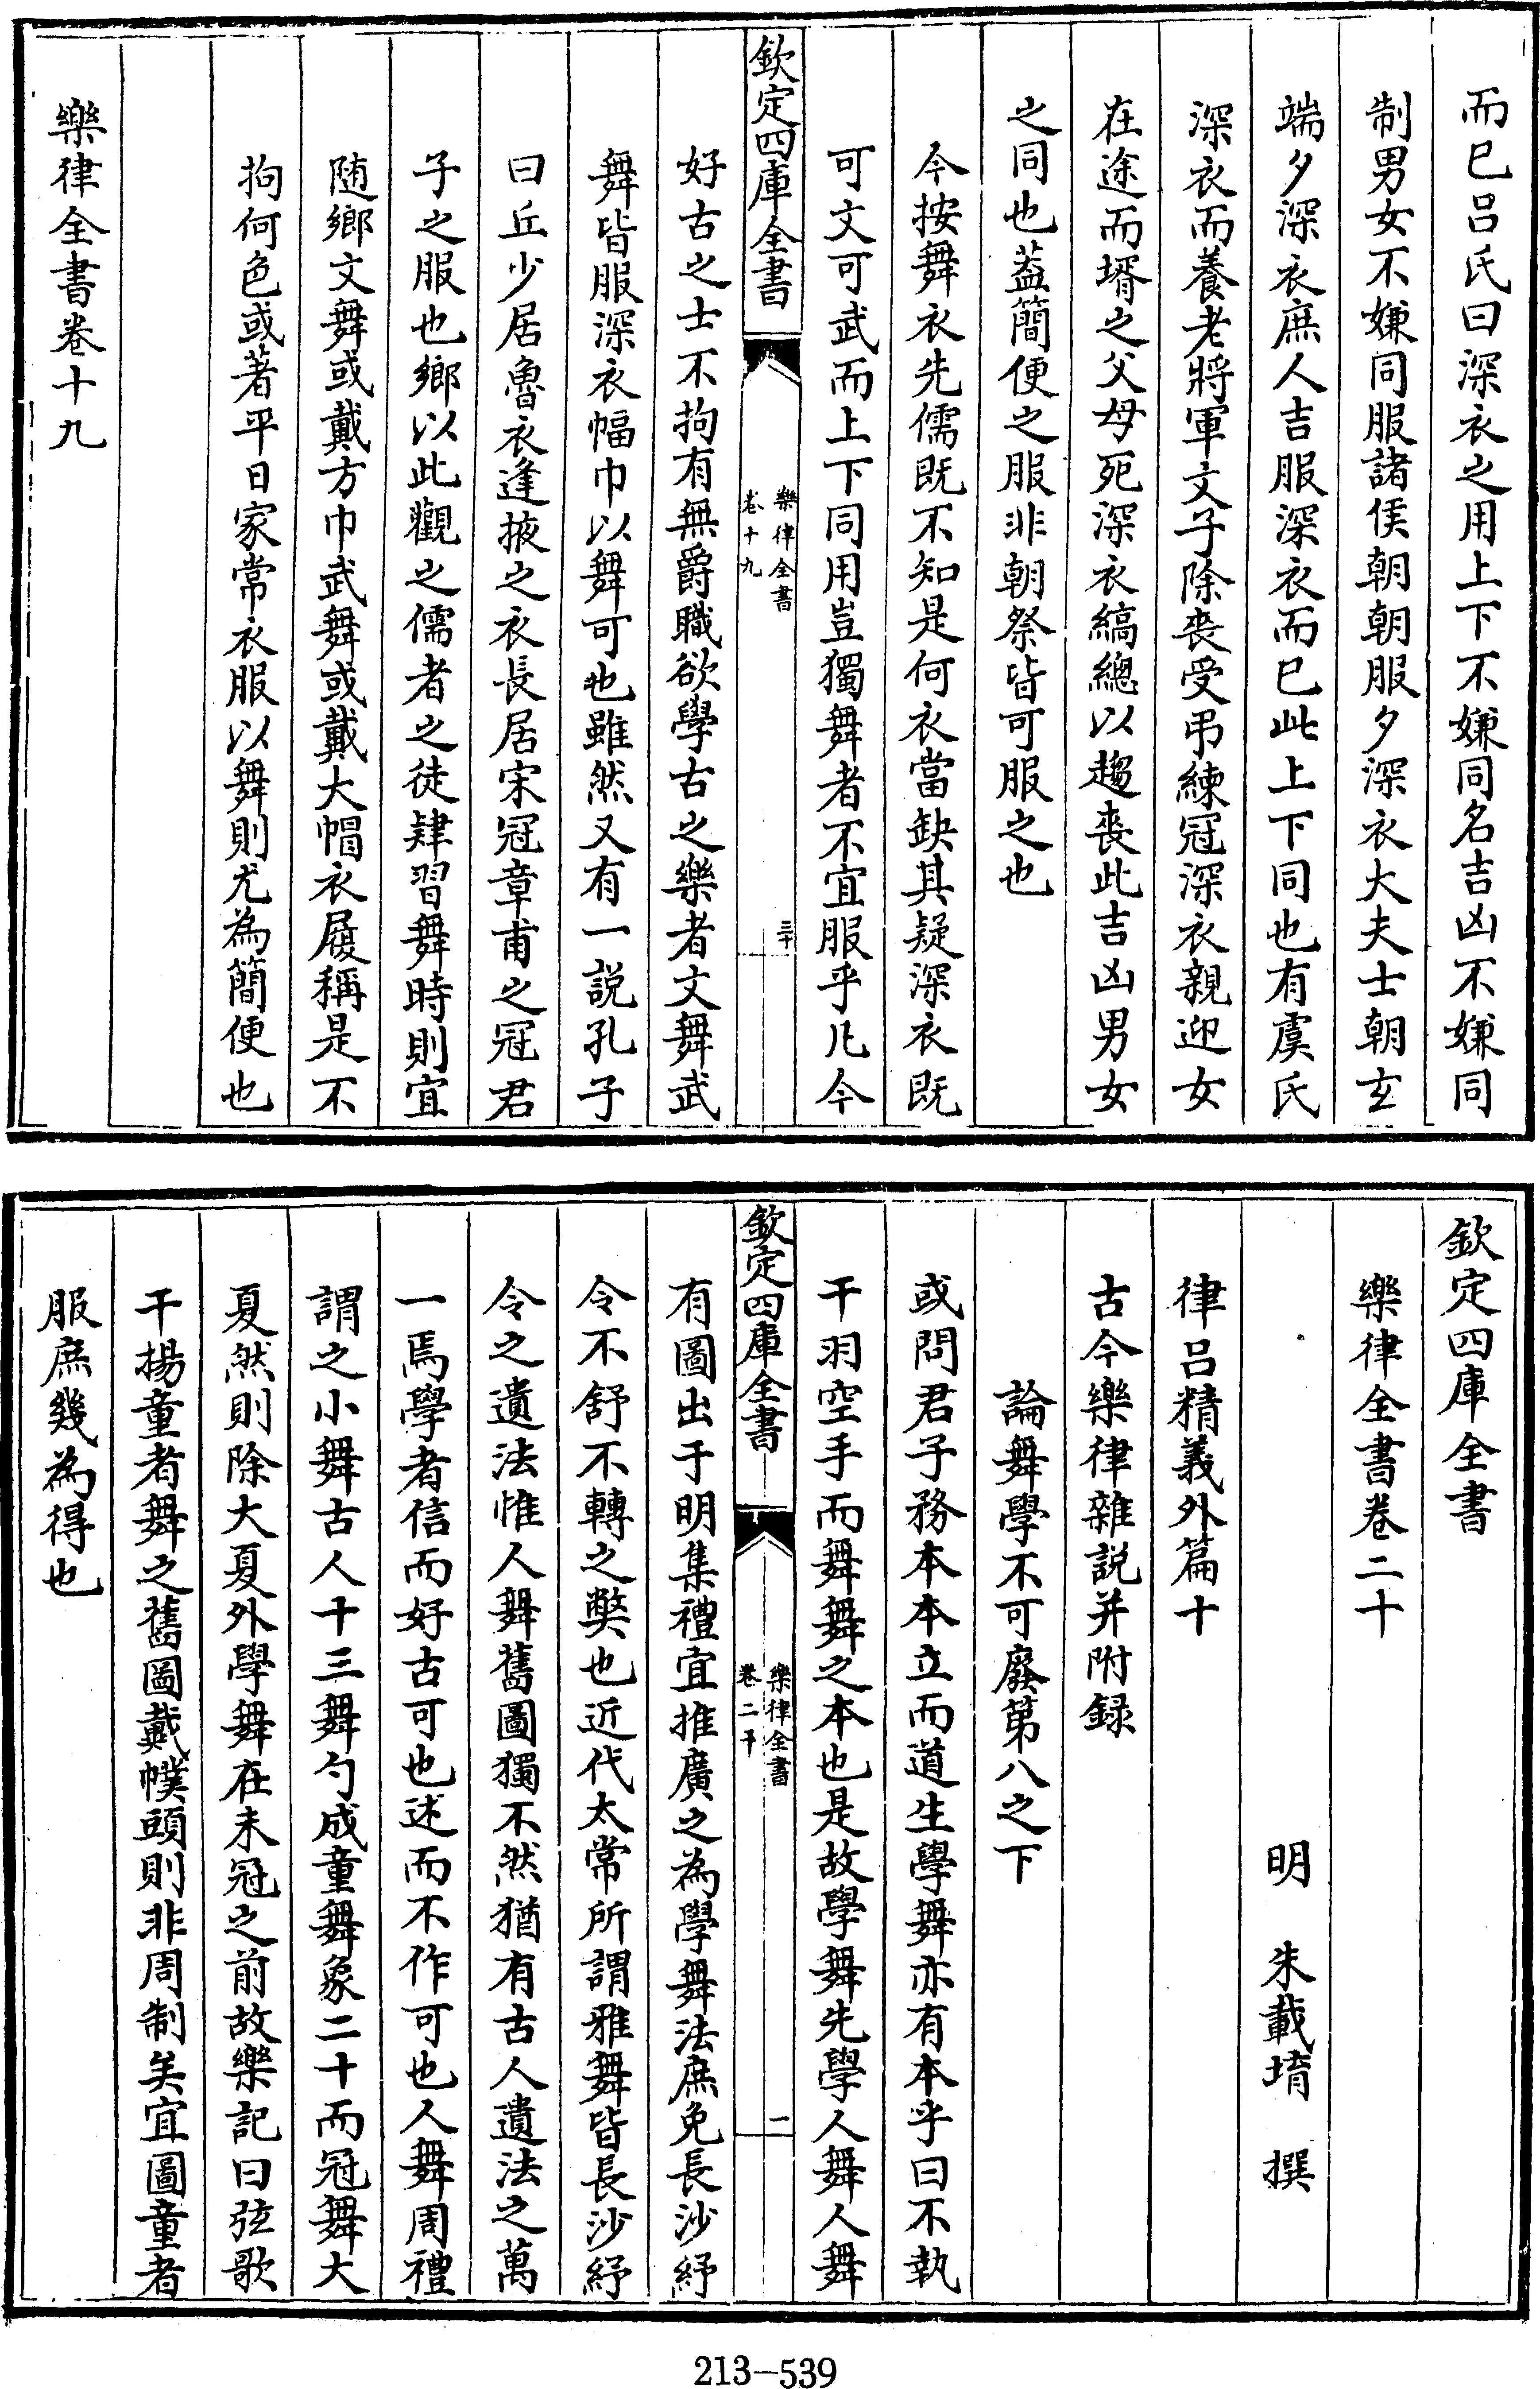 而已吕氏曰深衣之用上下不嫌同名吉凶不嫌同
制男女不嫌同服諸侯朝朝服夕深衣大夫士朝玄
端夕深衣庶人吉服深衣而已此上下同也有虞氏
深衣而養老將軍文子除喪受弔練冠深衣親迎女
在途而壻之父母死深衣縞總以趨喪此吉凶男女
之同也葢簡便之服非朝祭皆可服之也
今按舞衣先儒既不知是何衣當缺其疑深衣既
可文可武而上下同用豈獨舞者不宜服乎凡今
欽定四庫全書
樂律全書
卷十九
三十
好古之士不拘有無爵職欲學古之樂者文舞武
舞皆服深衣幅巾以舞可也雖然又有一説孔子
曰丘少居魯衣逢掖之衣長居宋冠章甫之冠君
子之服也鄉以此觀之儒者之徒肄習舞時則宜
随鄉文舞或戴方巾武舞或戴大帽衣履稱是不
拘何色或著平日家常衣服以舞則尤為簡便也
樂律全書卷十九
欽定四庫全書
樂律全書卷二十
明 朱載堉 撰
律吕精義外篇十
古今樂律雜説并附録
論舞學不可廢第八之下
或問君子務本本立而道生學舞亦有本乎曰不執
干羽空手而舞舞之本也是故學舞先學人舞人舞
欽定四庫全書
樂律全書
卷二十
一
有圖出于明集禮宜推廣之為學舞法庶免長沙紓
令不舒不轉之獘也近代太常所謂雅舞皆長沙紓
令之遺法惟人舞舊圖獨不然猶有古人遺法之萬
一焉學者信而好古可也述而不作可也人舞周禮
謂之小舞古人十三舞勺成童舞象二十而冠舞大
夏然則除大夏外學舞在未冠之前故樂記曰弦歌
干揚童者舞之舊圖戴幞頭則非周制矣宜圖童者
服庶幾為得也
213-539